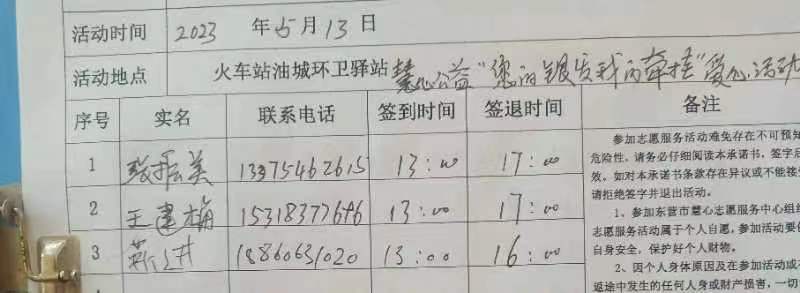 活动时间 2023 年 5 月 13 日
活动地点 火车站油城环卫驿站 慧心公益"您的银发我的牵挂"爱心活动
序号 实名 联系电话 签到时间 签退时间 备注
1 张振美 13375462615 13:00 17:00
2 王建梅 15318377646 13:00 17:00
3 18860631020 13:00 16:00
参加志愿服务活动难免存在不可预知
危险性，请务必仔细阅读本承诺书，签字后
效。如对本承诺书条款存在异议或不能接受
请拒绝签字并退出活动。
1、参加东营市慧心志愿服务中心组织
志愿服务活动属于个人自愿，参加活动要保
自身安全，保护好个人财物。
2、因个人身体原因及在参加活动或
返途中发生的任何人身或财产损害，一切